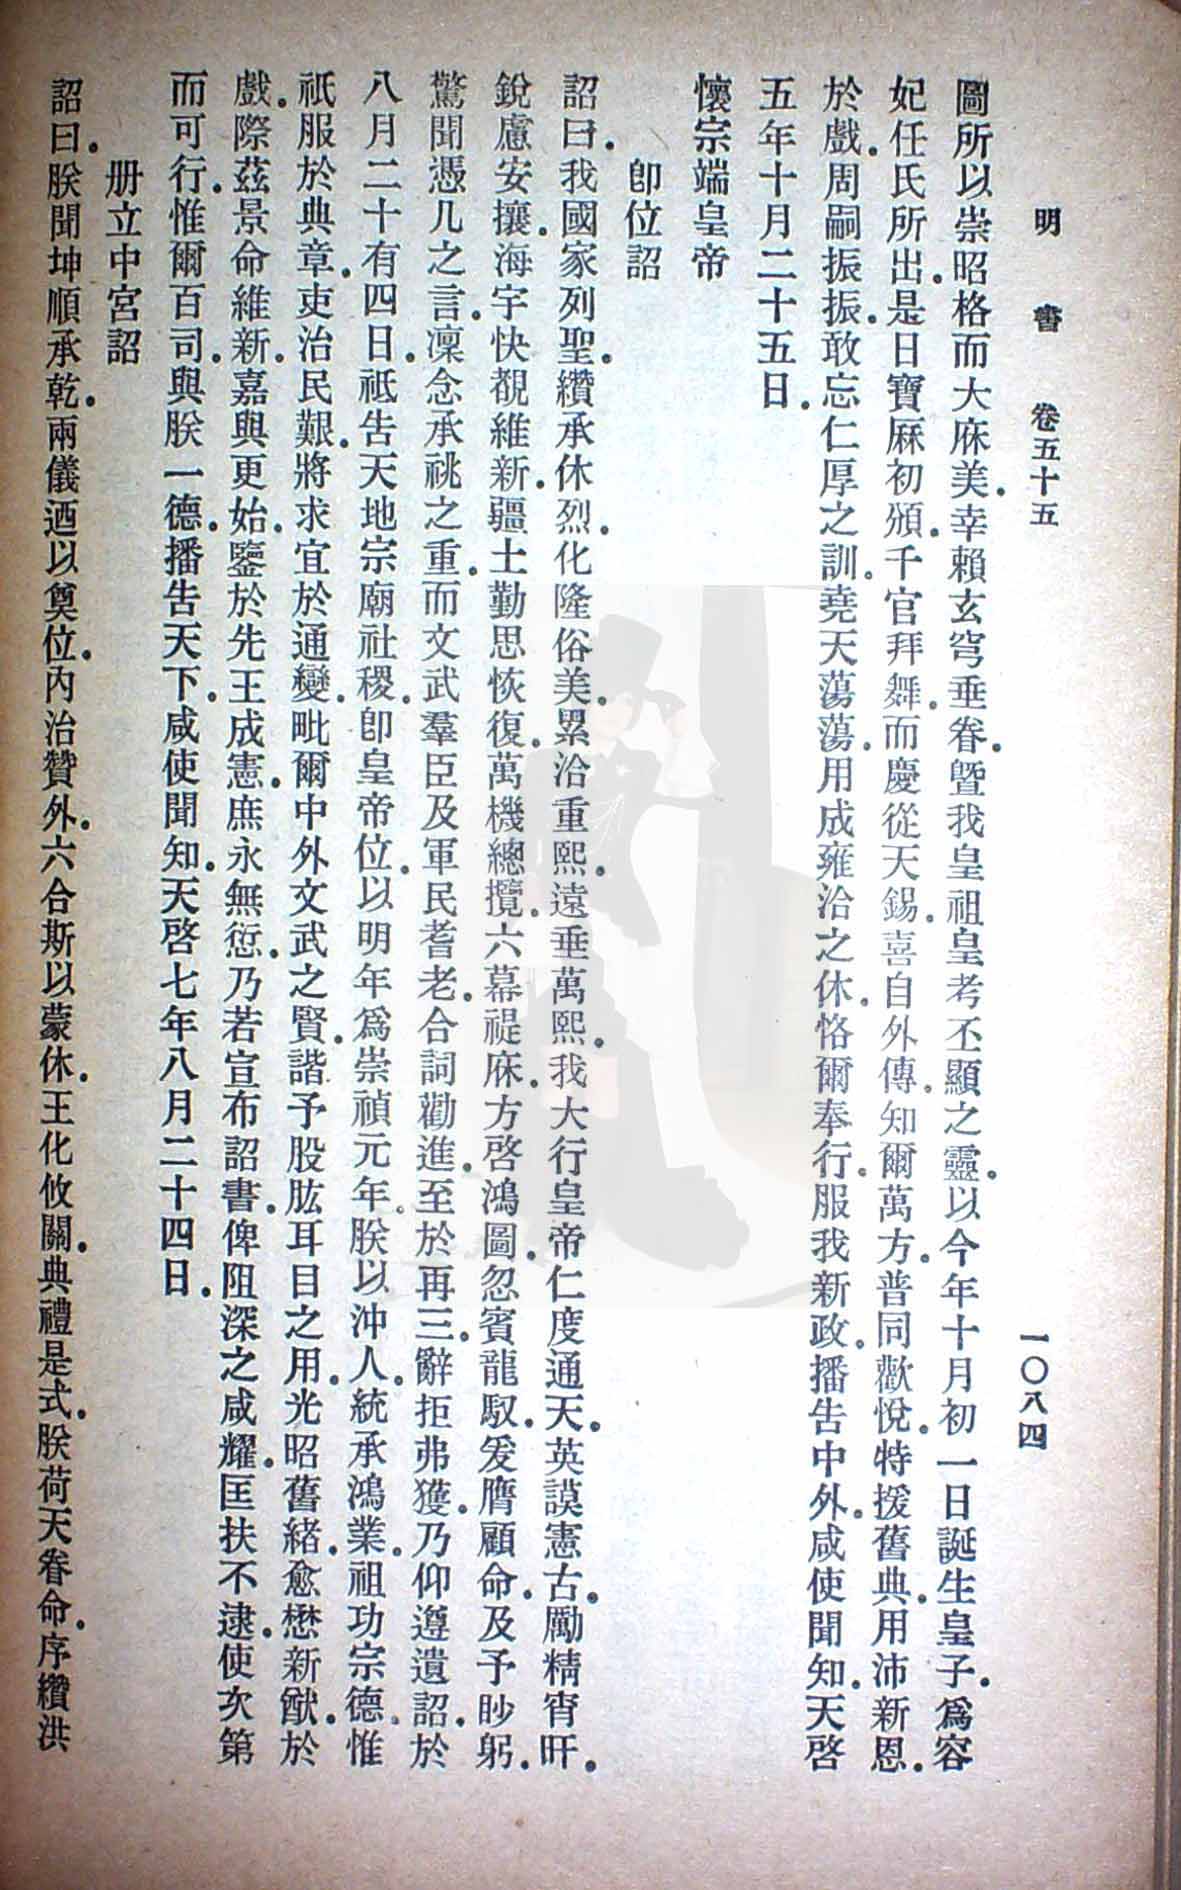 明書 卷五十五 一〇八四
圖所以崇昭格而大庥美．幸賴玄穹垂眷．曁我皇祖皇考丕顯之靈．以今年十月初一日誕生皇子．爲容
妃任氏所出．是日寶庥初頒．千官拜舞．而慶從天錫．喜自外傳．知爾萬方．普同歡悅．特援舊典．用沛新恩．
於戲．周嗣振振．敢忘仁厚之訓．堯天蕩蕩．用成雍洽之休．恪爾奉行．服我新政．播告中外．咸使聞知．天啓
五年十月二十五日．
懷宗端皇帝
卽位詔
詔曰．我國家列聖．纘承休烈．化隆俗美．累洽重熙．遠垂萬熙．我大行皇帝仁度通天．英謨憲古．勵精宵旰．
銳慮安攘．海宇快覩維新．疆土勤思恢復．萬機總攬．六幕禔庥．方啓鴻圖．忽賓龍馭．爰膺顧命．及予眇躬．
驚聞憑几之言．凜念承祧之重．而文武羣臣及軍民耆老．合詞勸進．至於再三．辭拒弗獲．乃仰遵遺詔．於
八月二十有四日．祗告天地宗廟社稷．卽皇帝位．以明年爲崇禎元年．朕以沖人．統承鴻業．祖功宗德．惟
祇服於典章．吏治民艱．將求宜於通變．毗爾中外文武之賢．諧予股肱耳目之用．光昭舊緒．愈懋新猷．於
戲．際茲景命維新．嘉與更始．鑒於先王成憲．庶永無愆．乃若宣布詔書．俾阻深之咸耀．匡扶不逮．使次第
而可行．惟爾百司．與朕一德．播告天下．咸使聞知．天啓七年八月二十四日．
册立中宮詔
詔曰．朕聞坤順承乾．兩儀迺以奠位．內治贊外．六合斯以蒙休．王化攸關．典禮是式．朕荷天眷命．序纘洪